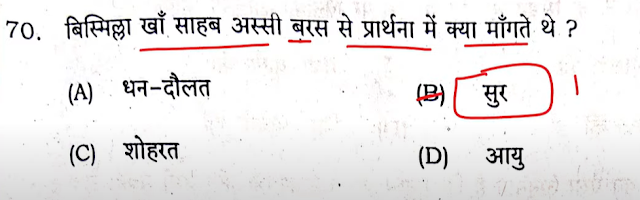 70. बिस्मिल्ला खाँ साहब अस्सी बरस से प्रार्थना में क्या माँगते थे ?
(A) धन-दौलत (B) सुर
(C) शोहरत (D) आयु